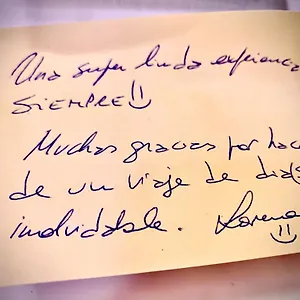 Una super linda experiencia
SIEMPRE!!
Muchas gracias por hac
de un viaje de dias
inolvidable. Lorena